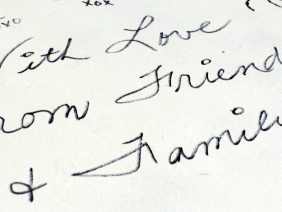 xo xox
With Love
From Friends
& Family